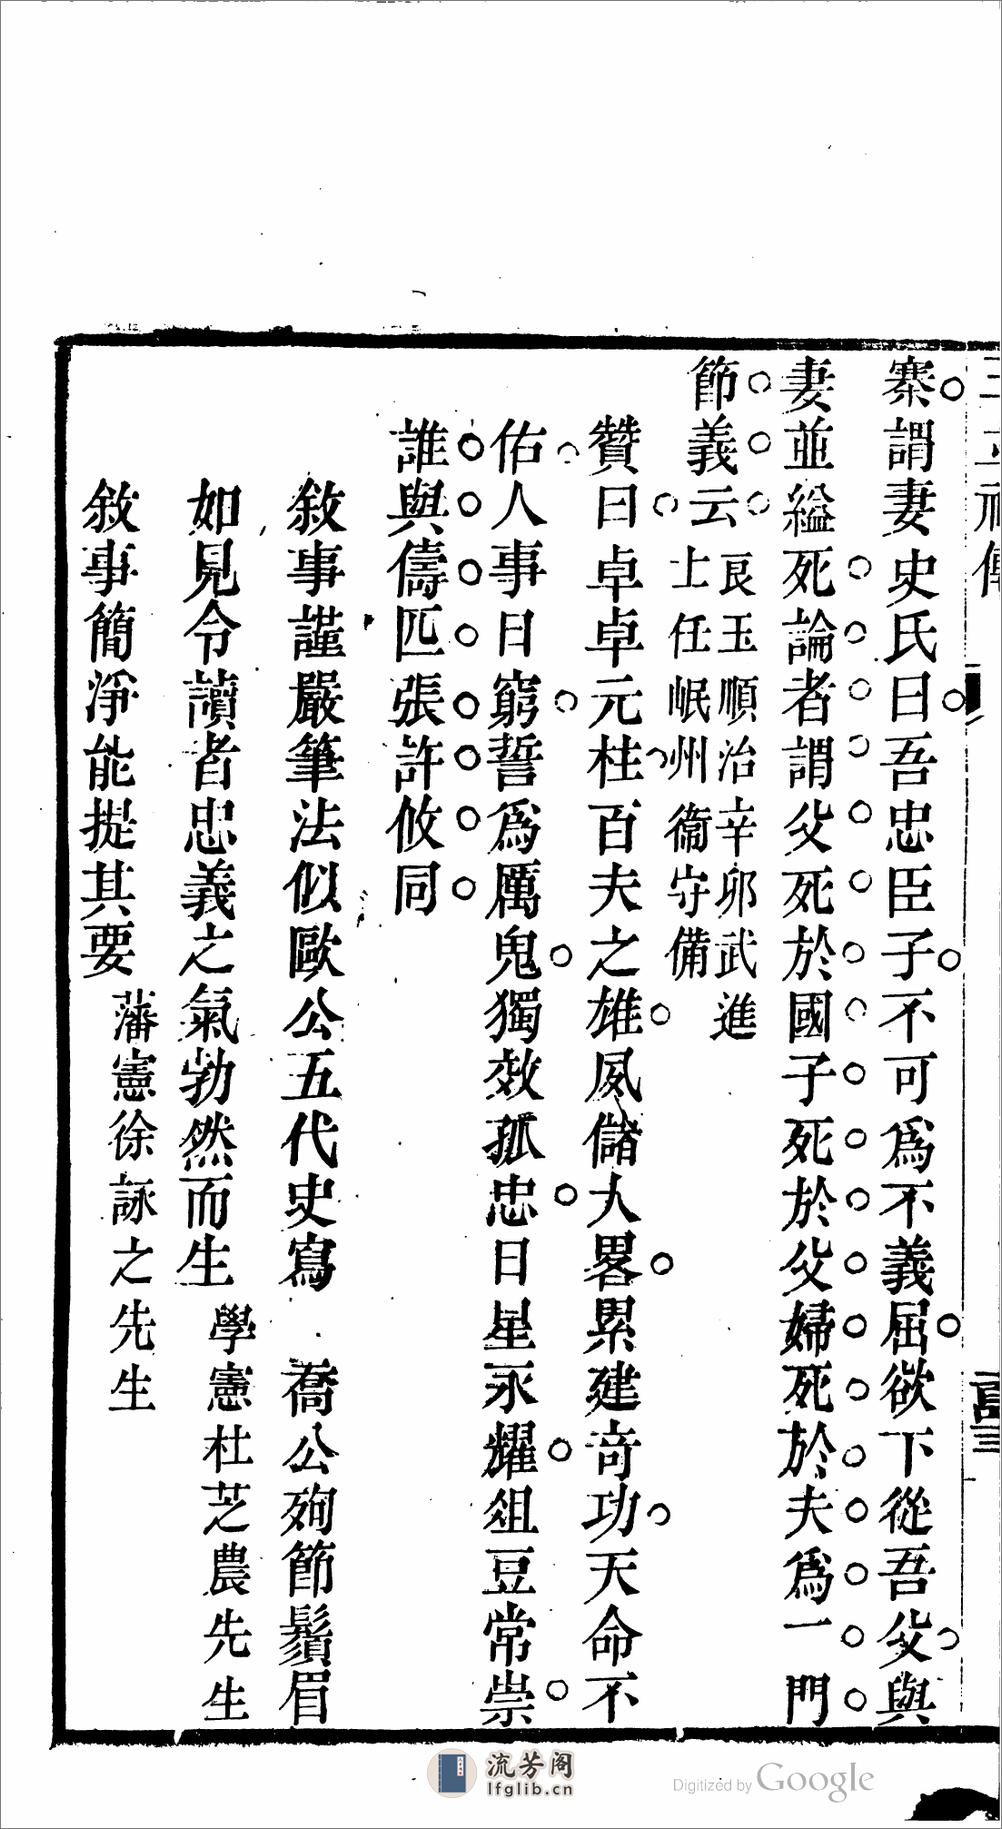 寨謂妻史氏曰吾忠臣子不可爲不義屈欲下從吾父與
妻並縊死論者謂父死於國子死於父婦死於夫爲一門
節義云
良玉順治辛卯武進
士任岷州衞守備
贊曰卓卓元柱百夫之雄威儲大畧累建奇功天命不
佑人事日窮誓爲厲鬼獨效孤忠日星永耀俎豆常崇
誰與儔匹張許攸同
敘事謹嚴筆法似歐公五代史寫喬公殉節鬚眉
如見令讀者忠義之氣勃然而生學憲杜芝農先生
敘事簡淨能提其要藩憲徐詠之先生
流芳阁
lfglib.cn
Digitized by Google